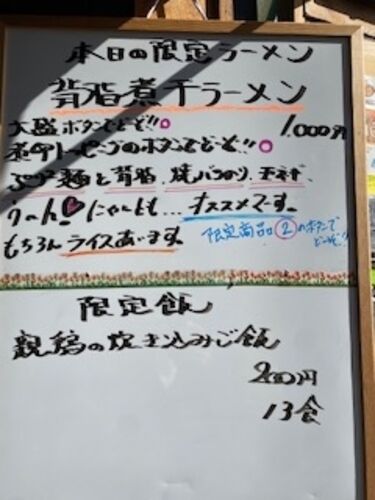 本日の限定ラーメン
背脂煮干ラーメン
大盛ボタンでどーぞ!! 1,000円
のボタンでどーぞ!!
麺と背脂、焼バラのり、玉ネギ
うーん にゃんとも... オススメでーす。
もちろんライスあいます。 限定商品②のボタンでどーぞ!!
限定飯
親鶏の炊き込みご飯
200円
13食